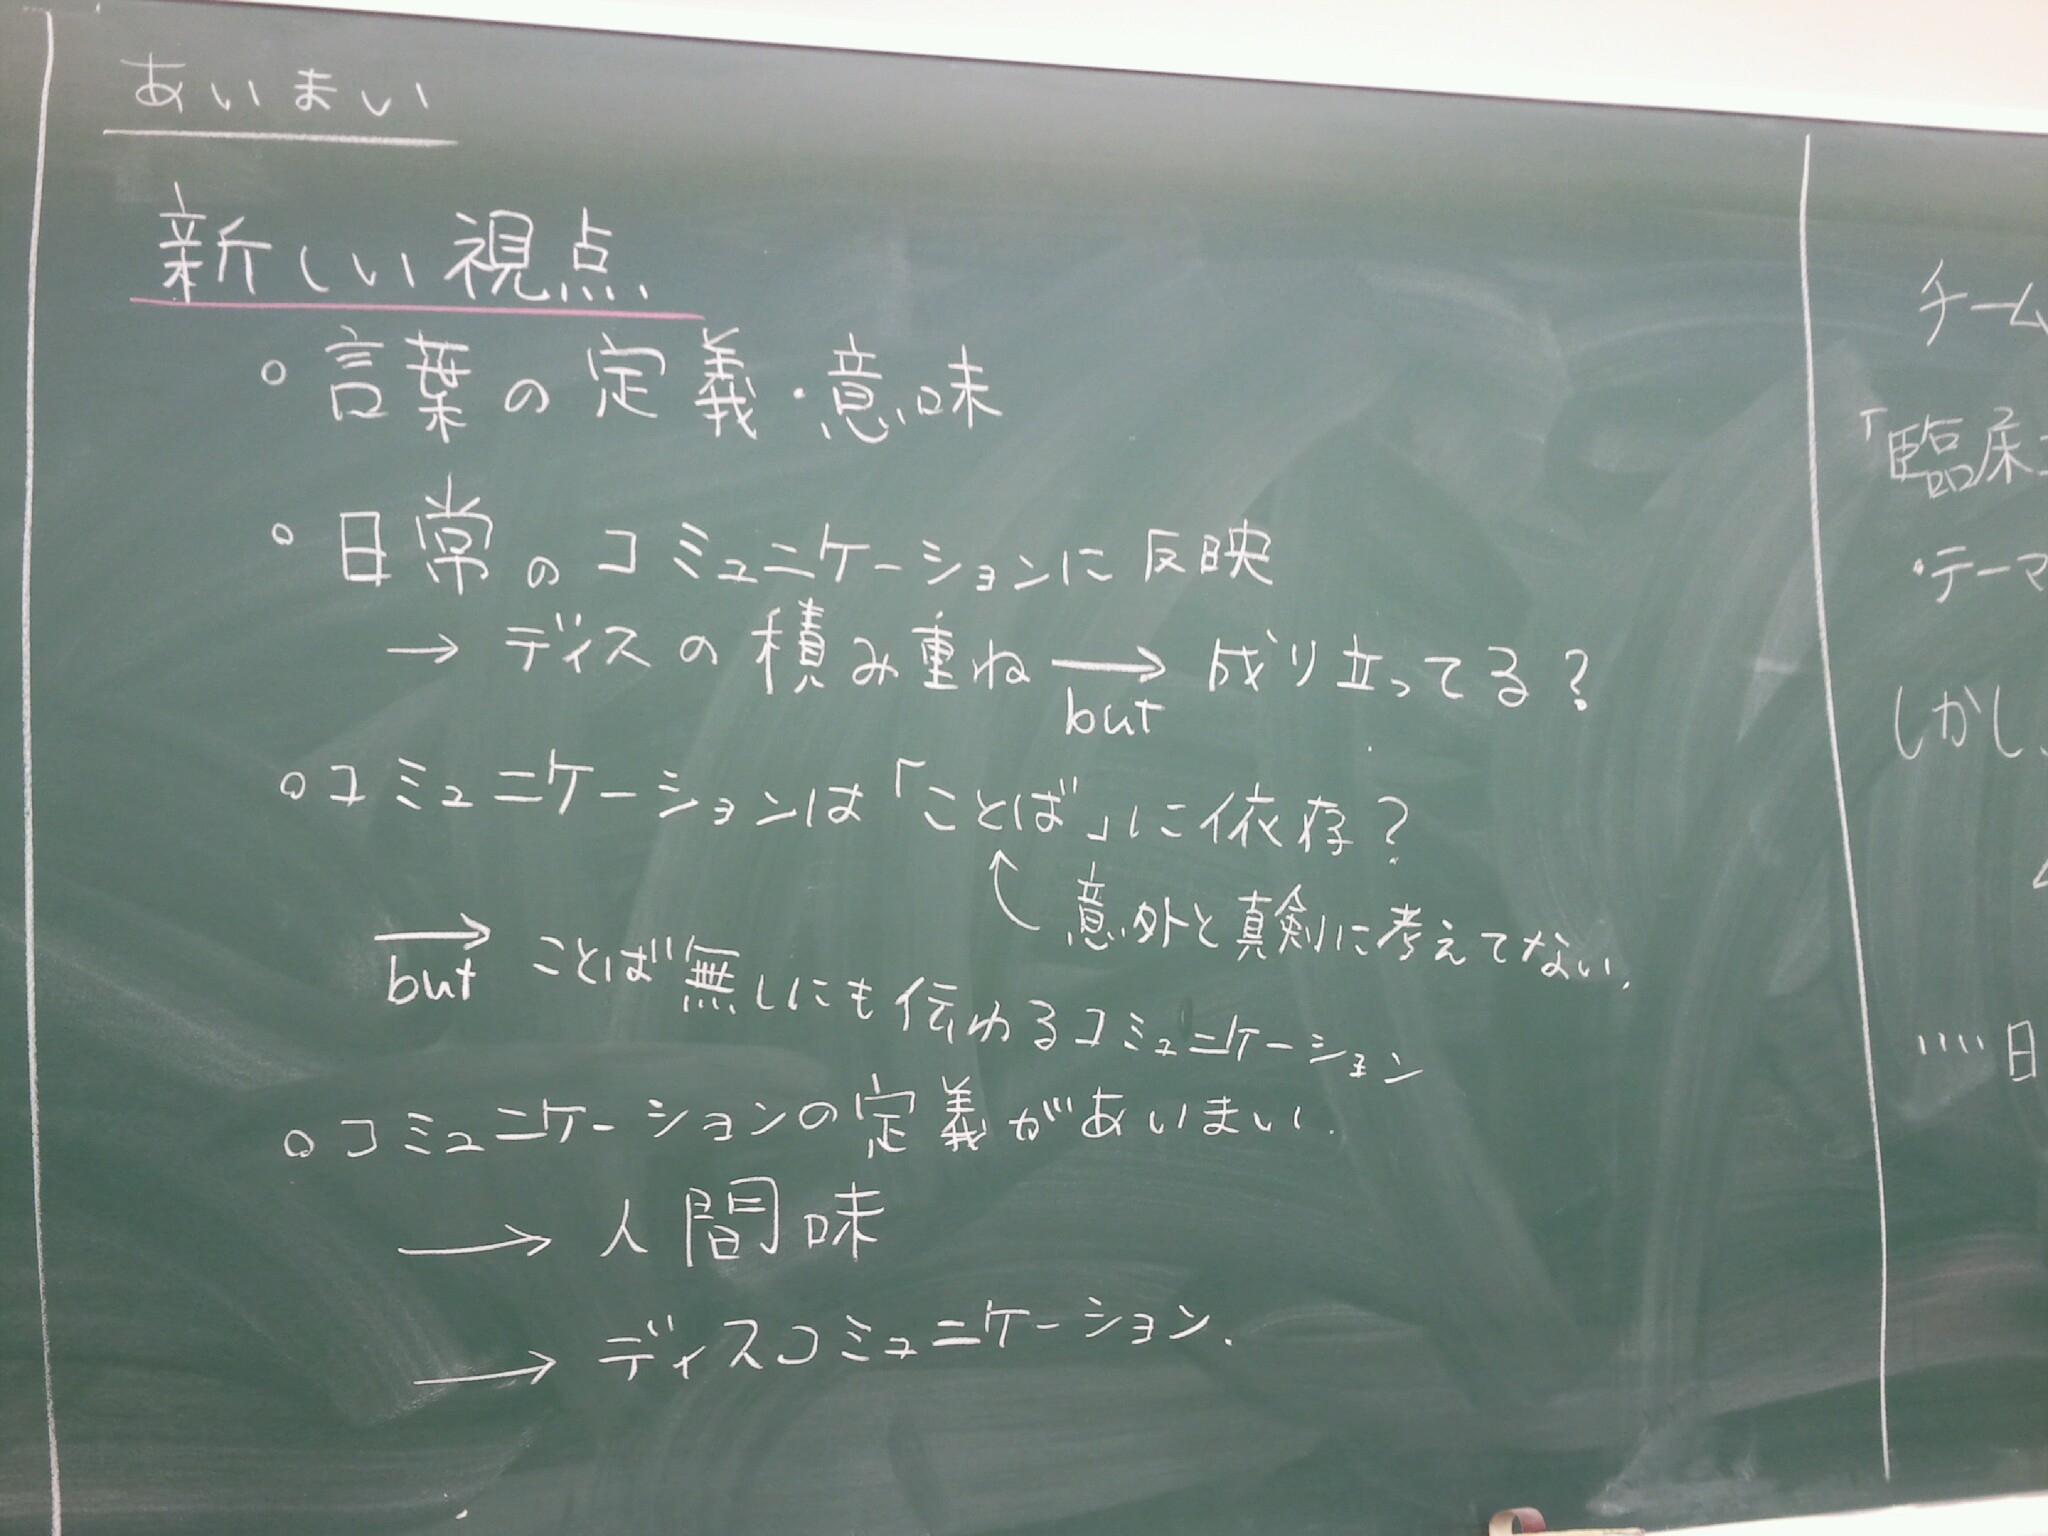 あいまい
新しい視点
○言葉の定義・意味
○日常のコミュニケーションに反映
→ディスの積み重ね→but成り立ってる?
○コミュニケーションは「ことば」に依存?
意外と真剣に考えてない.
→but ことば無しにも伝わるコミュニケーション
○コミュニケーションの定義があいまい.
→人間味
→ディスコミュニケーション.
チーム
「臨床
・テーマ
しかし、
日